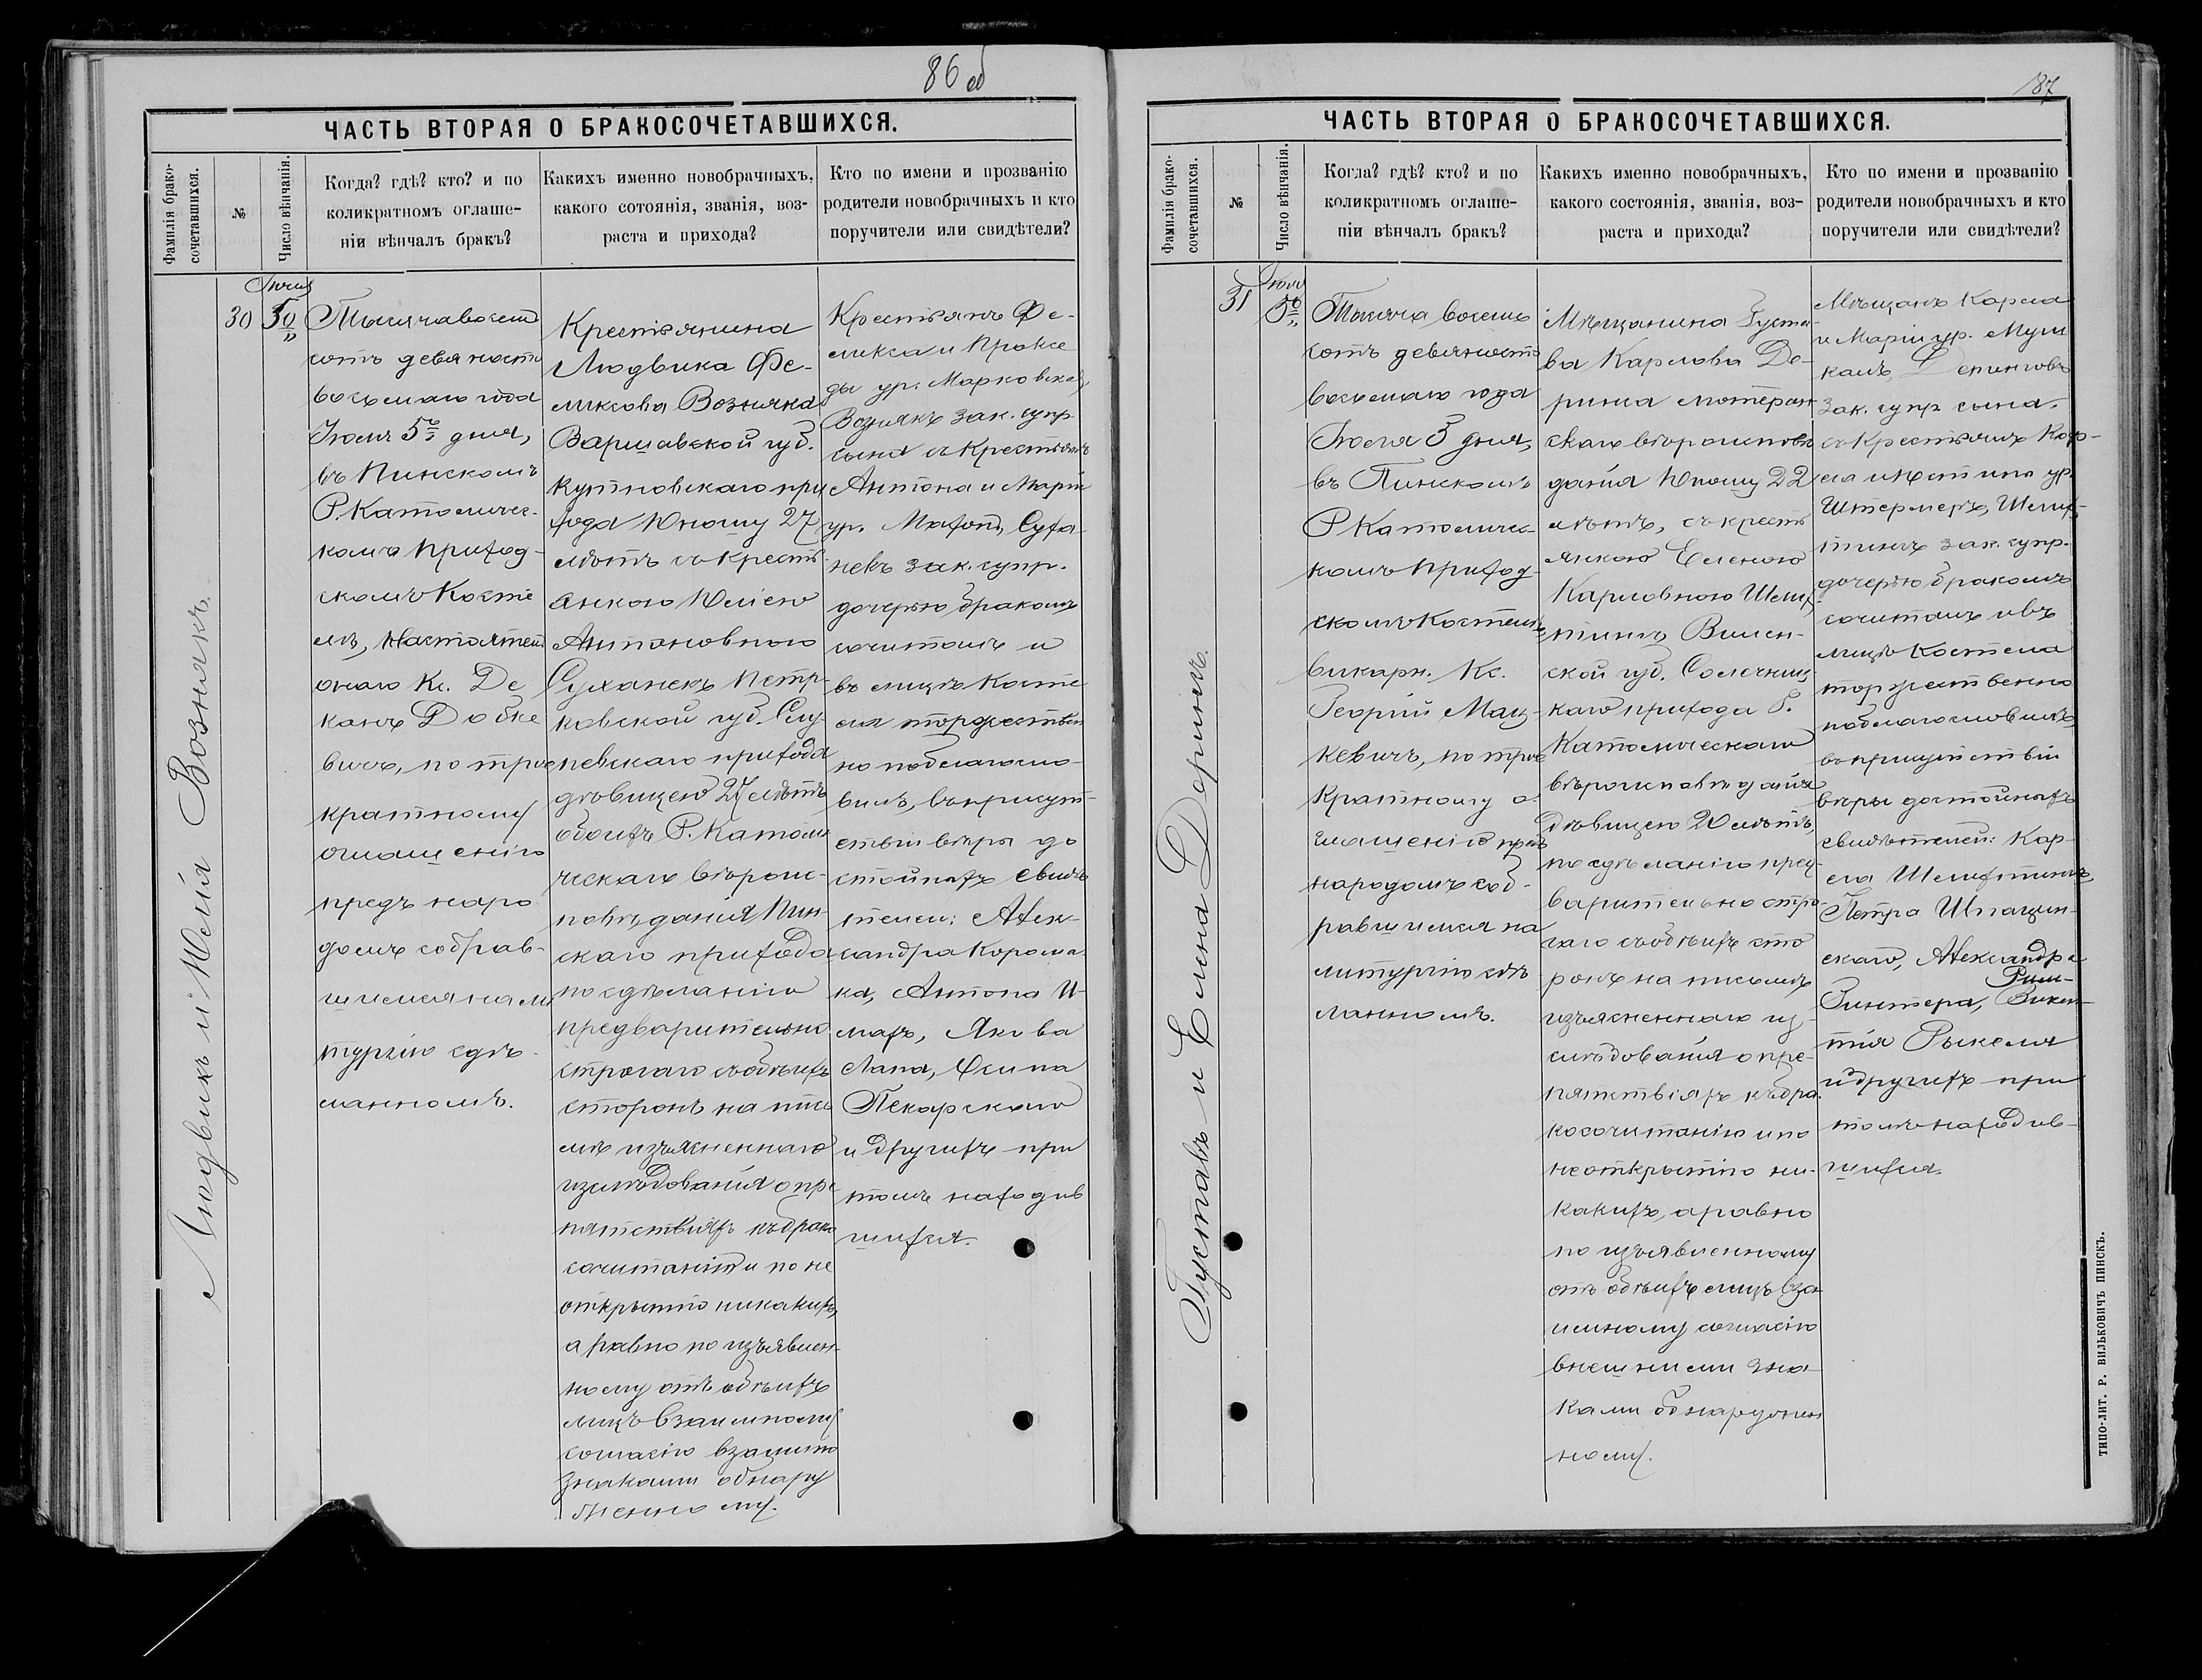 86 об
ЧАСТЬ ВТОРАЯ О БРАКОСОЧЕТАВШИХСЯ.
Фамилія брако-
сочетавшихся.
№
Число вѣнчанія.
Когда? гдѣ? кто? и по
коликратномъ оглаше-
ніи вѣнчалъ бракъ?
Какихъ именно новобрачныхъ,
какого сотоянія, званія, воз-
раста и прихода?
Кто по имени и прозванію
родители новобрачныхъ и кто
поручители или свидѣтели?
Людвикъ и Юлія Вознякъ.
30
Іюля
5го
Тысяча восем
сотъ девяносто
восьмаго года
Іюля 5го дня,
въ Пинскомъ
Р. Католичес-
комъ приход-
скомъ косте
лѣ, Настоятель
онаго Кс. Де
канъ
вичъ, по трое
кратному
оглашенію
предъ наро
домъ собрав-
шимся на ли
тургію сдѣ-
ланномъ.
Крестьянина
Людвика Фе-
ликсова Возняка
Варшавской губ.
Кутновскаго при
хода юношу 27
лѣтъ съ крестъ
янкою Юліею
Антоновною
Суханекъ Петр-
ковской губ. Слу-
певскаго прихода
дѣвицею 27 лѣтъ
обоихъ Р. Католи
ческаго вѣрои-
повѣданія Пин-
скаго прихода
по сдѣланію
предварительно
строгаго съ обѣихъ
сторонъ на пись
мѣ изъясненнаго
изслѣдованія о пре
пятствіяхъ къ брако
сочитанію и по не
открытію никакихъ,
а равно по изъявлен-
ному отъ обѣихъ
лицъ взаимному
согласію
знаками обнару
женному.
Крестьянъ Фе-
ликса и Праксе
ды ур. Марковской
Вознякъ зак. супр.
сына съ крестьянъ
Антона и Маріи
ур. Суха-
некъ зак. супр.
дочерью бракомъ
сочиталъ и
въ лицѣ косте
ла торжествен
но поблагосло-
вилъ, въ присут-
ствіи вѣры до
стойныхъ свидѣ
телей: Алек-
сандра Корола-
ка, Антона И-
Якова
Лапа, Осипа
Пекарскаго
и другихъ при
томъ находив
шихся.
87
ЧАСТЬ ВТОРАЯ О БРАКОСОЧЕТАВШИХСЯ.
Фамилія брако-
сочетавшихся.
№
Число вѣнчанія.
Когда? гдѣ? кто? и по
коликратномъ оглаше-
ніи вѣнчалъ бракъ?
Какихъ именно новобрачныхъ,
какого состоянія, званія, воз-
раста и прихода?
Кто по имени и прозванію
родители новобрачныхъ и кто
поручители или свидѣтели?
Густавъ и Елена Дерингъ.
31
Іюля
5го
Тысяча восемь
сотъ девяносто
восьмаго года
Іюля 5 дня,
въ Пинскомъ
Р. Католичес-
комъ приход-
скомъ костелѣ
викарн. Кс.
Георгій Мац-
кевичъ, по трое
кратному о-
глашенію предъ
народомъ соб-
равшимся на
литургію сдѣ
ланномъ.
Мѣщанина Густа-
ва Карлова Де-
ринга лютеран
скаго вѣроисповѣ
данія юношу 22
лѣтъ, съ кресть
янкою Еленою
Карловною
Вилен-
ской губ. Солечниц-
каго прихода Р.
Католическаго
вѣроисповѣданія
дѣвицею 20 лѣтъ,
по сдѣланію пред-
варительно стро-
гаго съ обѣихъ сто
ронъ на письмѣ
изъясненнаго из-
слѣдованія о пре-
пятствіяхъ къ бра-
косочитанію и по
неоткрытію ни-
какихъ, а равно
по изъявленному
отъ обѣихъ лицъ вза
имному согласію
внешними зна-
ками обнаружен
ному.
Мѣщанъ Карла
и Маріи ур.
Дерингъ
зак. супр. сына,
съ крестьянъ Кар-
ла и ур.
зак. супр.
дочерью бракомъ
сочиталъ и въ
лицѣ костела
торжественно
поблагословилъ
въ присутствіи
вѣры достойныхъ
свидѣтелей: Кар-
ла
Петра
скаго, Александра
Викен-
тія Рымеля
и другихъ при
томъ находив-
шихся.
ТИПО-ЛИТ. Р. ВИЛЬКОВИЧЪ ПИНСКЪ.